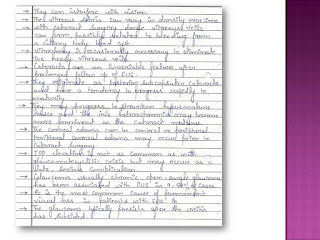 → They can interfere with vision.
→ The vitreous debris can vary in density overtime.
→ with cataract surgery dense vitreous veils
can form possibly related to bleeding from
a ciliary body blood spot.
→ Vitrectomy is occasionally necessary to eliminate
the heavy vitreous veils.
→ Cataracts are an invariable feature after
prolonged follow up of FUS.
→ They originate as posterior subcapsular cataracts
and have a tendency to progress rapidly to
maturity
→ They may progress to
lenses and the iris heterochromia may become
more prominent as the cataract matures.
→ The corneal edema can be central or peripheral.
Peripheral corneal edema may occur prior to
cataract surgery
→ IOP elevation if not as common as with
glaucomatocyclitic crisis but may occur as a
late, serious complication.
→ Glaucoma usually chronic, open-angle glaucoma
has been associated with FUS in of cases.
→ It is the most common cause of permanent
visual loss in patients with
→ The glaucoma typically persists after the uveitis
has subsided